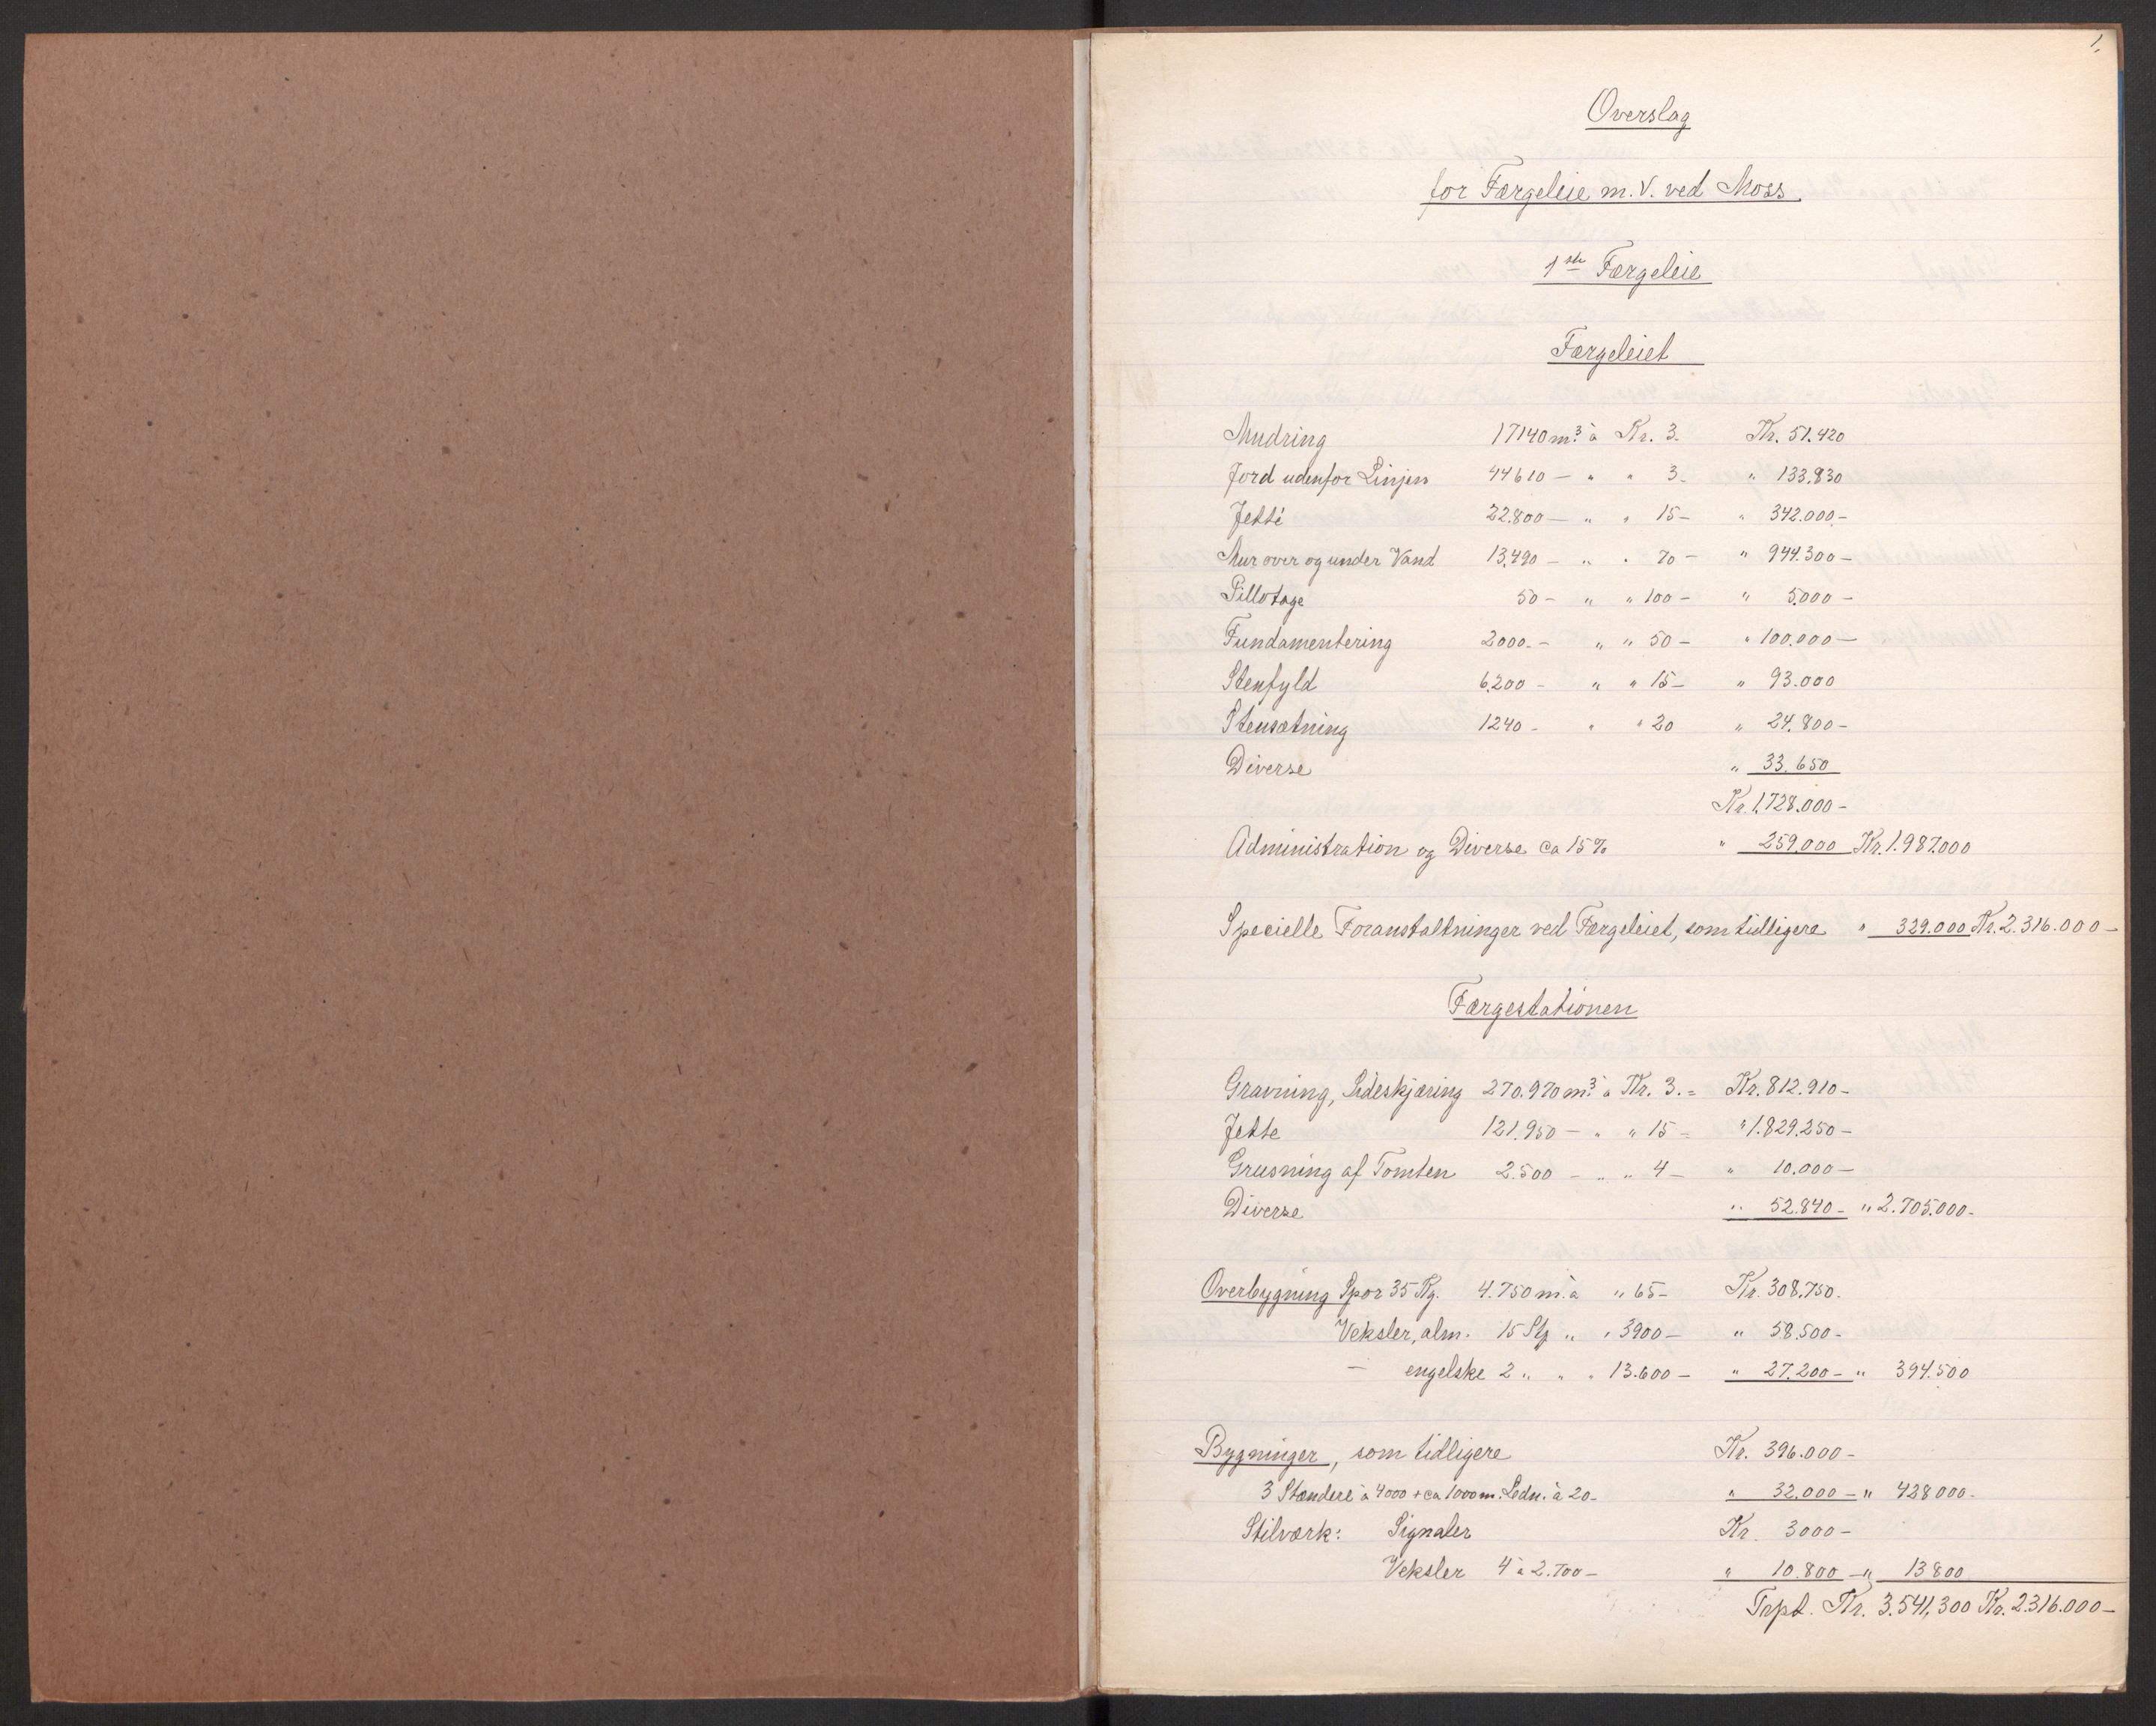 1.
Overslag
for Færgeleie m.V. ved Moss.
1ste Færgeleie
Færgeleiet
Mudring 17140 m³ à Kr. 3. Kr. 51.420
Jord udenfor Linjen 44610 — " " 3- " 133.830
Jetté 22.800 — " " 15- " 342.000-
Mur over og under Vand 13.490 — " " 70- " 944.300-
Pillotage 50 - " " 100- " 5.000-
Fundamentering 2000.- " " 50- " 100.000-
Stenfyld 6.200 - " " 15- " 93.000
Stensætning 1240 - " " 20 " 24.800-
Diverse " 33.650
Kr. 1.728.000-
Administration og Diverse ca 15% " 259.000 Kr. 1.987.000
Specielle Foranstaltninger ved Færgeleiet, som tidligere " 329.000 Kr. 2.316.000-
Færgestationen
Gravning, Sideskjæring 270.970 m³ à Kr. 3.= Kr. 812.910-
Jette 121.950 — " " 15 = " 1.829.250-
Grusning af Tomten 2.500 - " " 4- " 10.000-
Diverse " 52.840- " 2.705.000-
Overbygning Spor 35 Kg. 4.750 m. à " 65- Kr. 308.750.
Veksler, alm. 15 Stp " " 3900- " 58.500-
— engelske 2 " " " 13.600- " 27.200- " 394.500
Bygninger, som tidligere Kr. 396.000-
3 Stændere à 4000 + ca 1000 m. Ledn. à 20- " 32.000- " 428000-
Stilværk: Signaler Kr. 3000-
Veksler 4 à 2.700- " 10.800- " 13800
Trpt. Kr. 3.541,300 Kr. 2.316.000-